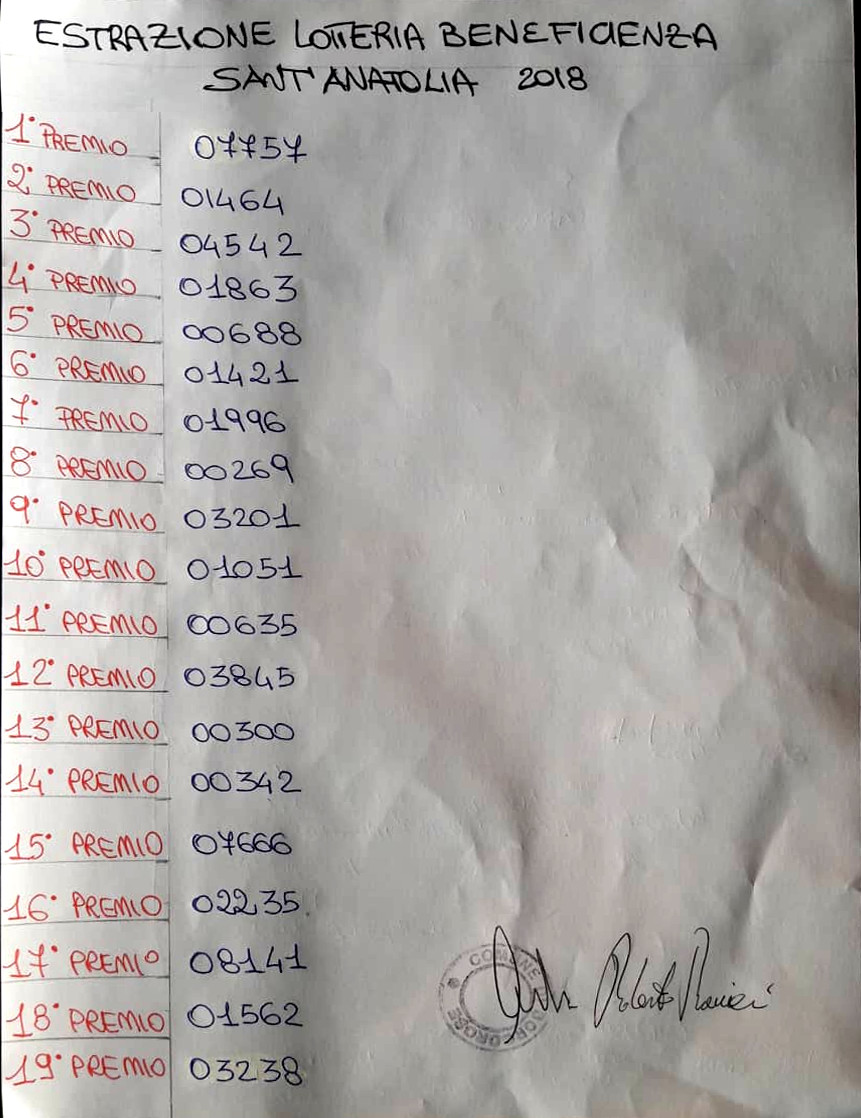 ESTRAZIONE LOTTERIA BENEFICIENZA
SANT'ANATOLIA 2018
1° PREMIO 07757
2° PREMIO 01464
3° PREMIO 04542
4° PREMIO 01863
5° PREMIO 00688
6° PREMIO 01421
7° PREMIO 01996
8° PREMIO 00269
9° PREMIO 03201
10° PREMIO 01051
11° PREMIO 00635
12° PREMIO 03845
13° PREMIO 00300
14° PREMIO 00342
15° PREMIO 07666
16° PREMIO 02235
17° PREMIO 08141
18° PREMIO 01562
19° PREMIO 03238
COMUNE
BORGOROSE
Roberto